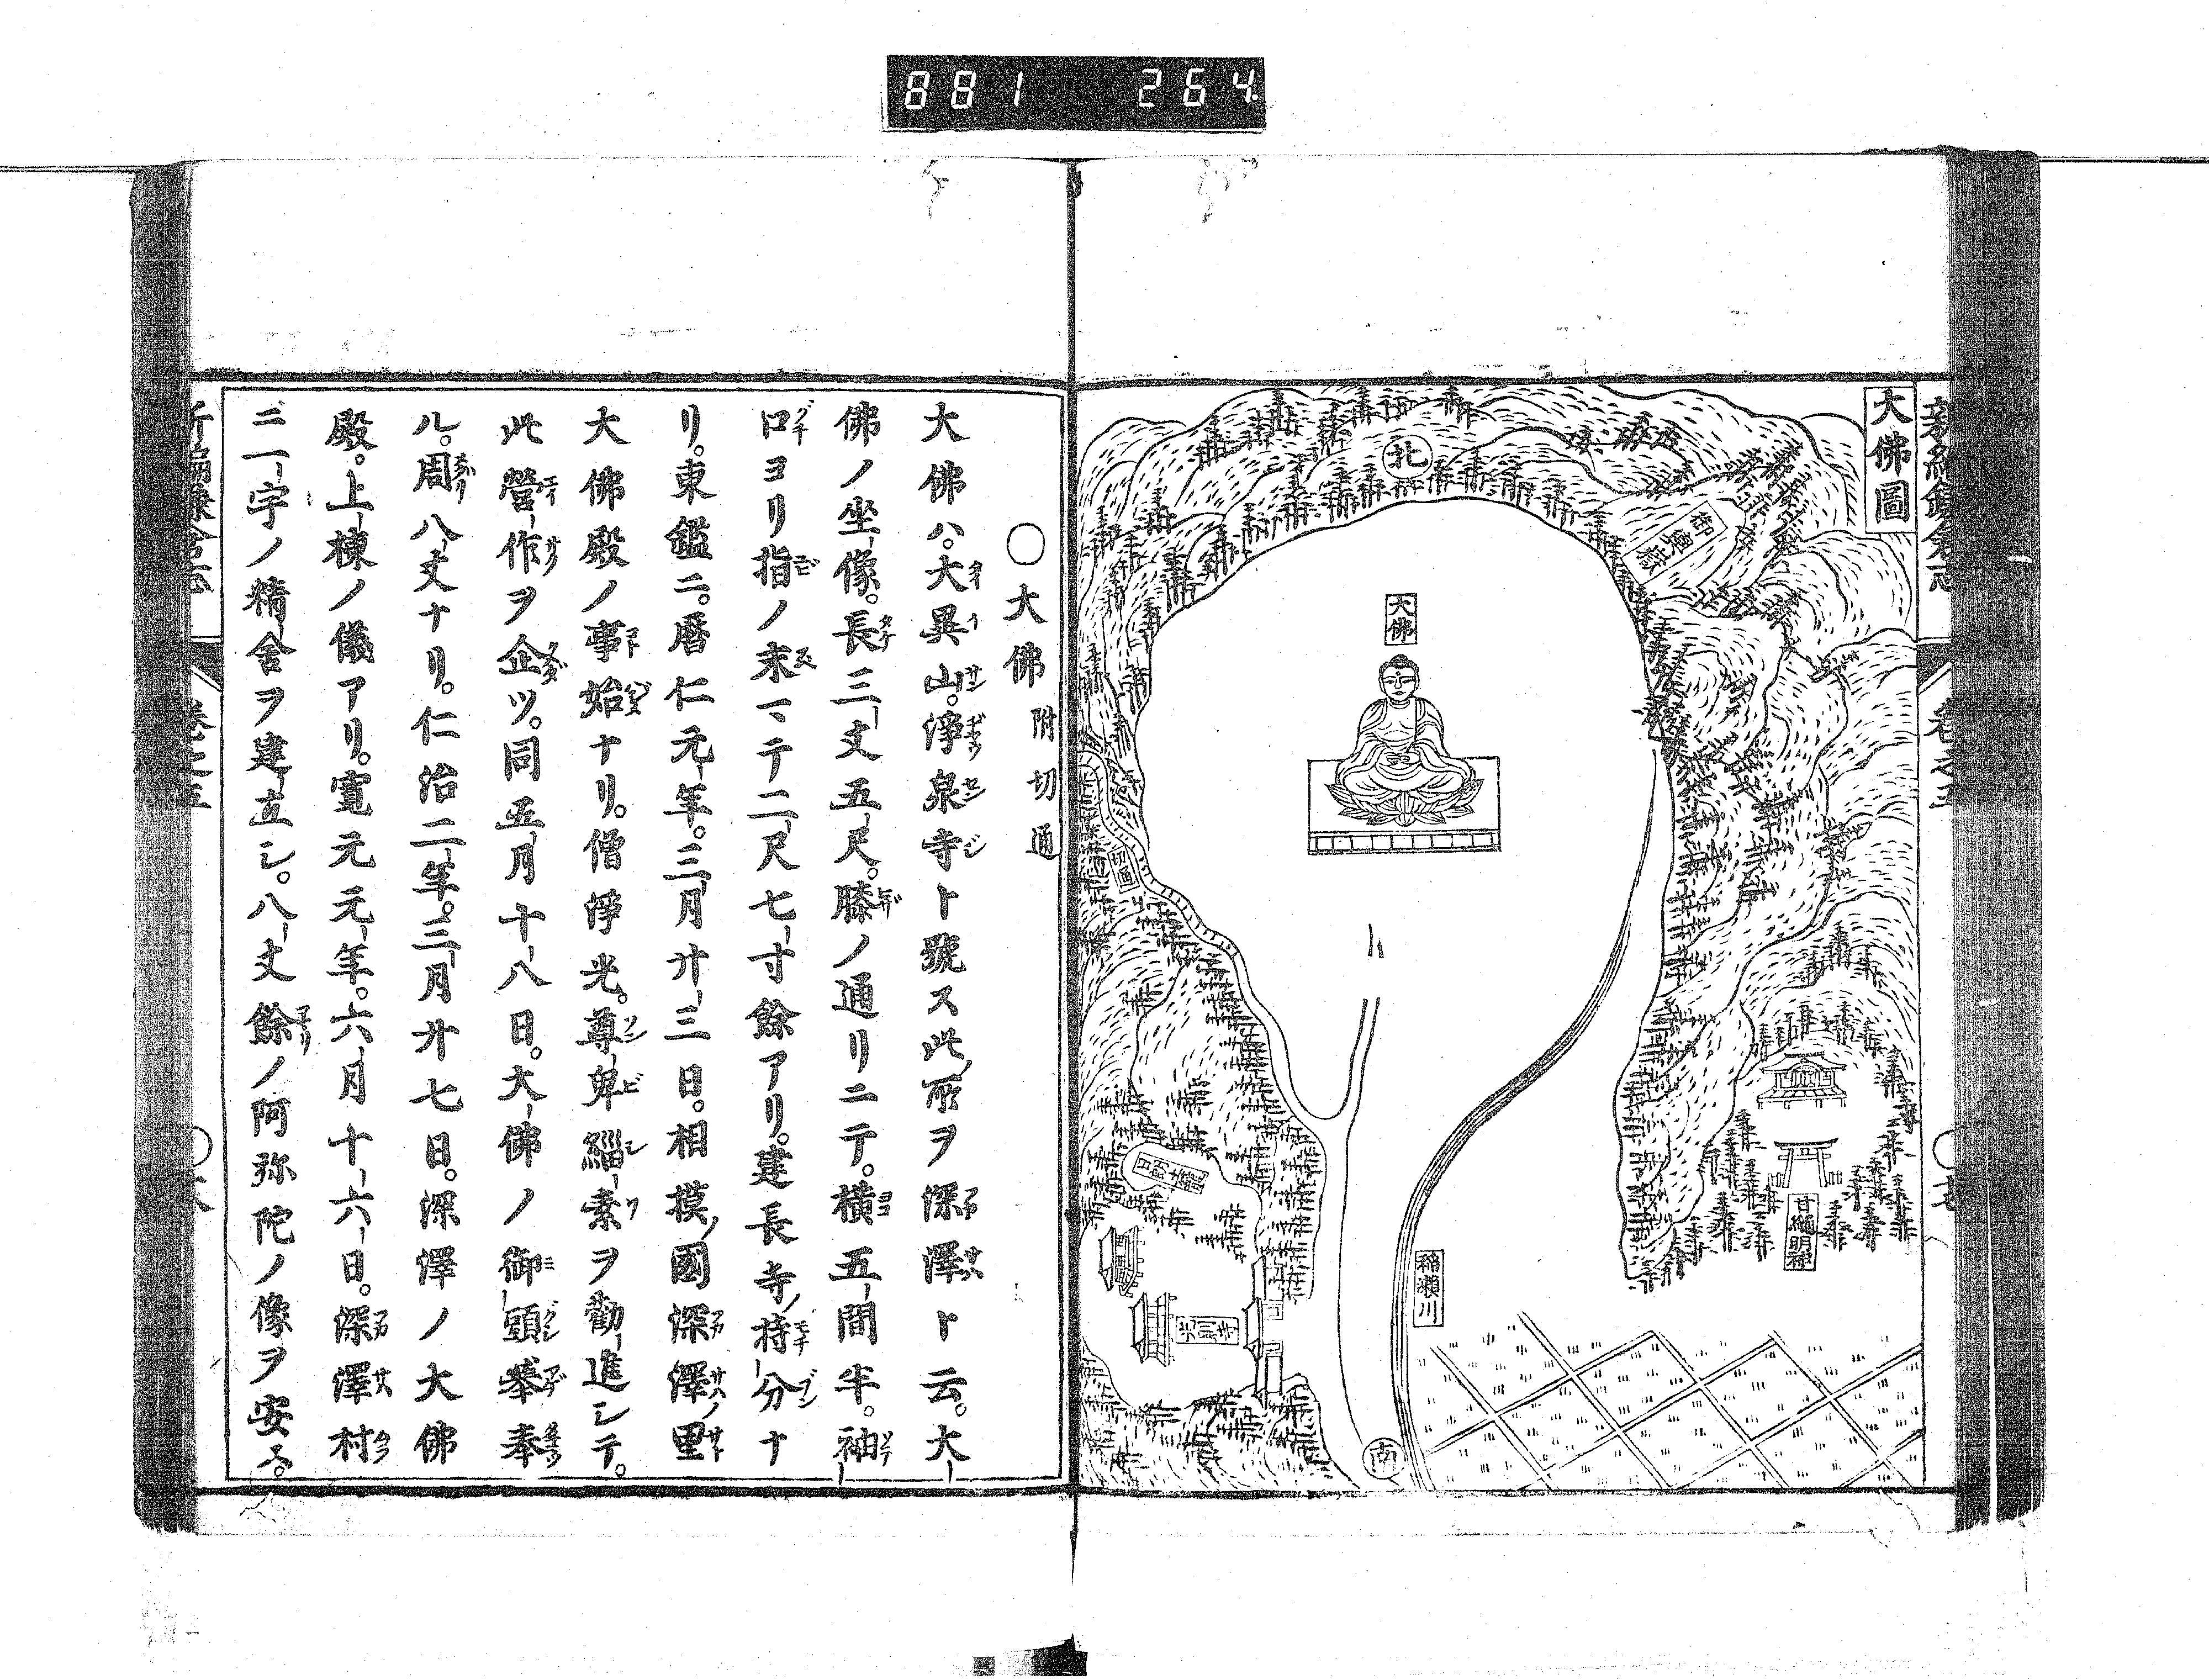 881 264
新編鎌倉志
卷之五
大佛圖
北
御輿嶽
大佛
切通
甘繩明神
稲瀬川
光則寺
南
○大佛 附切通
大佛ハ。大異山。淨泉寺ト號ス此所ヲ深澤ト云。大
佛ノ坐像。長三丈五尺。膝ノ通リニテ。横五間半。袖
口ヨリ指ノ末マテ二尺七寸餘アリ。建長寺ノ持分ナ
リ。東鑑ニ。曆仁元年。三月廿三日。相模ノ國深澤ノ里
大佛殿ノ事始ナリ。僧淨光。尊卑緇素ヲ勸進シテ。
此營作ヲ企ツ。同五月十八日。大佛ノ御頭擧奉
ル。周八丈ナリ。仁治二年。三月廿七日。深澤ノ大佛
殿。上棟ノ儀アリ。寛元元年。六月十六日。深澤村
ニ一宇ノ精舍ヲ建立シ。八丈餘ノ阿弥陀ノ像ヲ安ス。